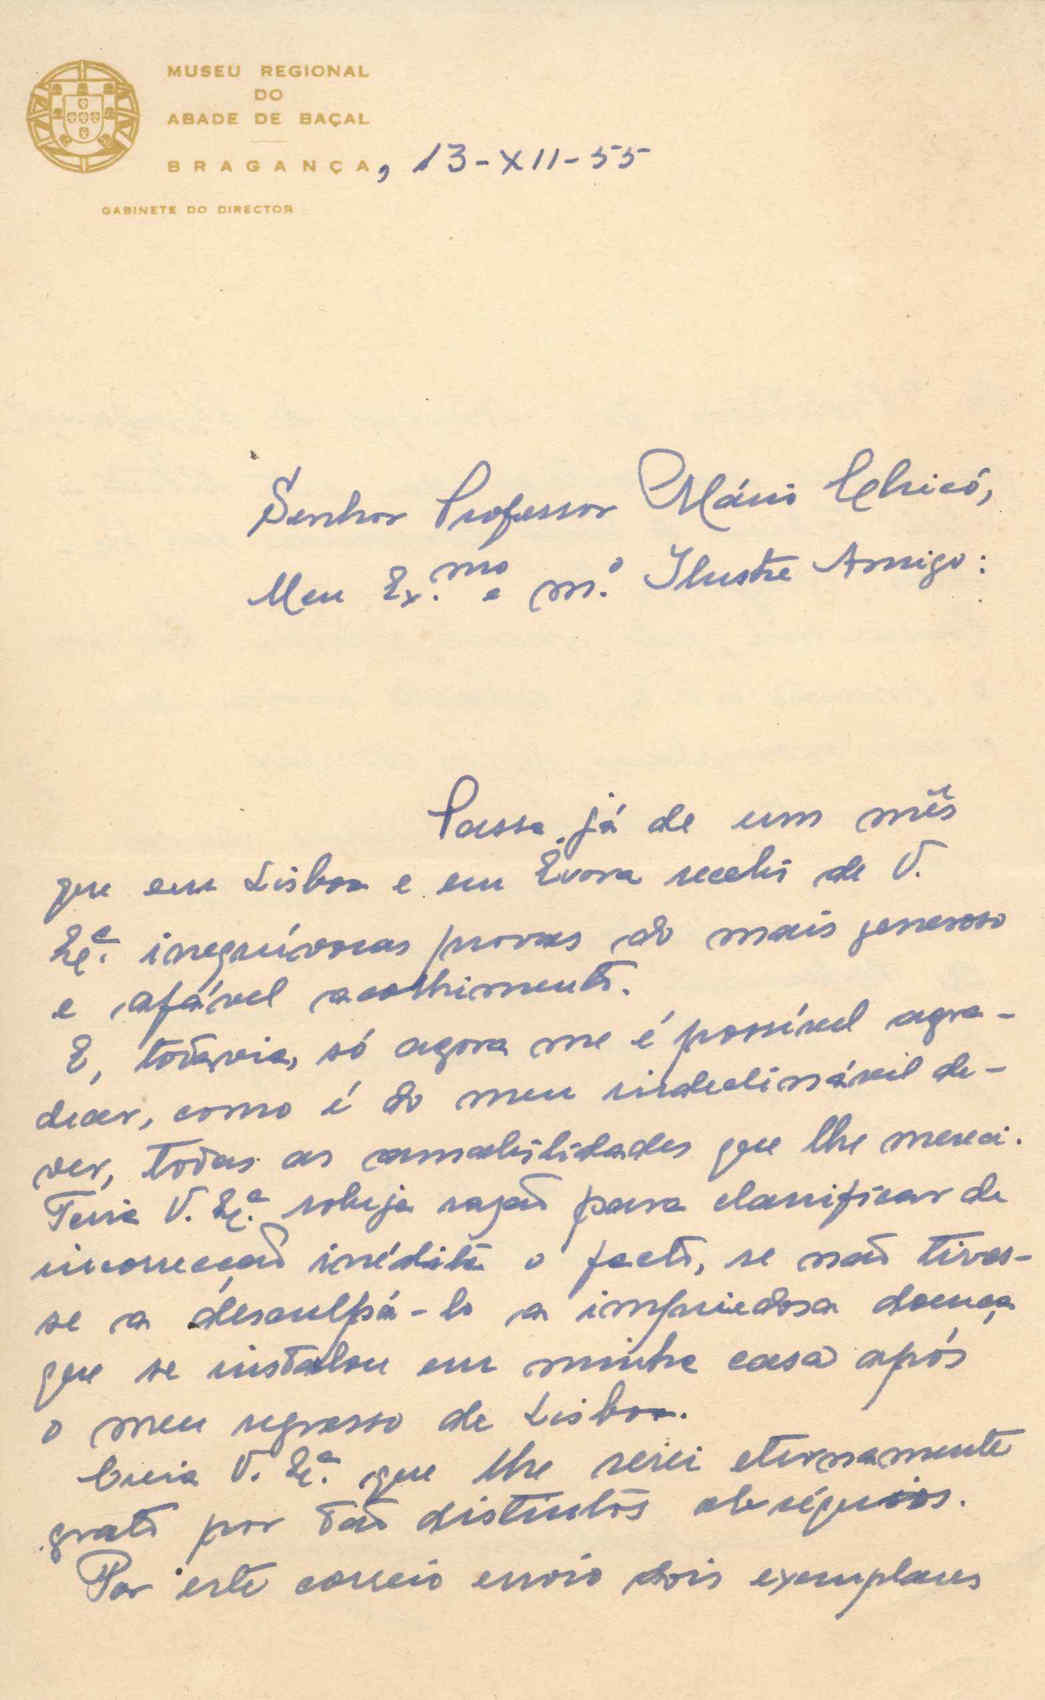 MUSEU REGIONAL
DO
ABADE DE BAÇAL
BRAGANÇA, 13-XII-55
GABINETE DO DIRECTOR
Senhor Professor Mário Chicó,
Meu Ex.mo e m.o Ilustre Amigo:
Passa já de um mês
que em Lisboa e em Évora recebi de V.
Ex.a inequívocas provas do mais generoso
e afável acolhimento.
E, todavia, só agora me é possível agra-
decer, como é do meu indeclinável de-
ver, todas as amabilidades que lhe mereci.
Teria V. Ex.a sobeja razão para classificar de
incorrecção inédita o facto, se não tives-
se a desculpá-lo a impiedosa doença
que se instalou em minha casa após
o meu regresso de Lisboa.
Creia V. Ex.a que lhe serei eternamente
grato por tão distintos obséquios.
Por este correio envio dois exemplares